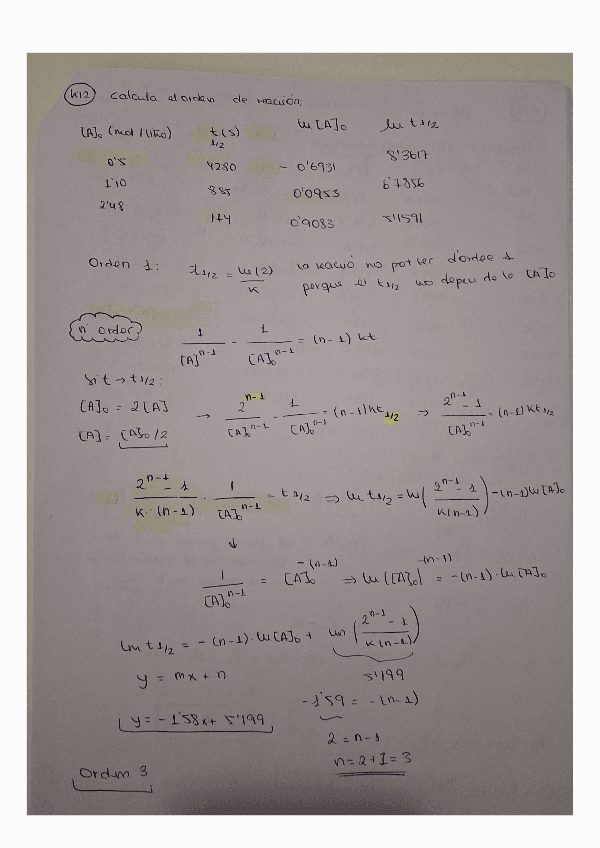 K12 Calcula el orden de reacción:
[A]₀ (mol/litro) t 1/2 (s) ln [A]₀ ln t 1/2
0'5 4280 - 0'6931 8'3617
1'10 885 0'0953 6'7856
2'48 174 0'9083 5'1591
Orden 1: t 1/2 = ln(2)/K la reació no pot ser d'ordre 1
porque el t 1/2 no depen de la [A]₀
n orden 1/[A]^(n-1) - 1/[A]₀^(n-1) = (n-1) kt
Si t → t 1/2:
[A]₀ = 2[A] → 2^(n-1)/[A]₀^(n-1) - 1/[A]₀^(n-1) = (n-1)kt 1/2 ⇒ (2^(n-1) - 1)/[A]₀^(n-1) = (n-1) kt 1/2
[A] = [A]₀/2
(2^(n-1) - 1)/(K·(n-1)) · 1/[A]₀^(n-1) = t 1/2 ⇒ ln t 1/2 = ln((2^(n-1) - 1)/(K(n-1))) - (n-1) ln [A]₀
↓
1/[A]₀^(n-1) = [A]₀^(-(n-1)) ⇒ ln([A]₀)^(-(n-1)) = -(n-1)·ln [A]₀
ln t 1/2 = -(n-1)·ln[A]₀ + ln((2^(n-1) - 1)/(K(n-1)))
y = mx + n 5'199
-1'59 = -(n-1)
y = -1'58x + 5'199
2 = n-1
n = 2+1 = 3
Orden 3